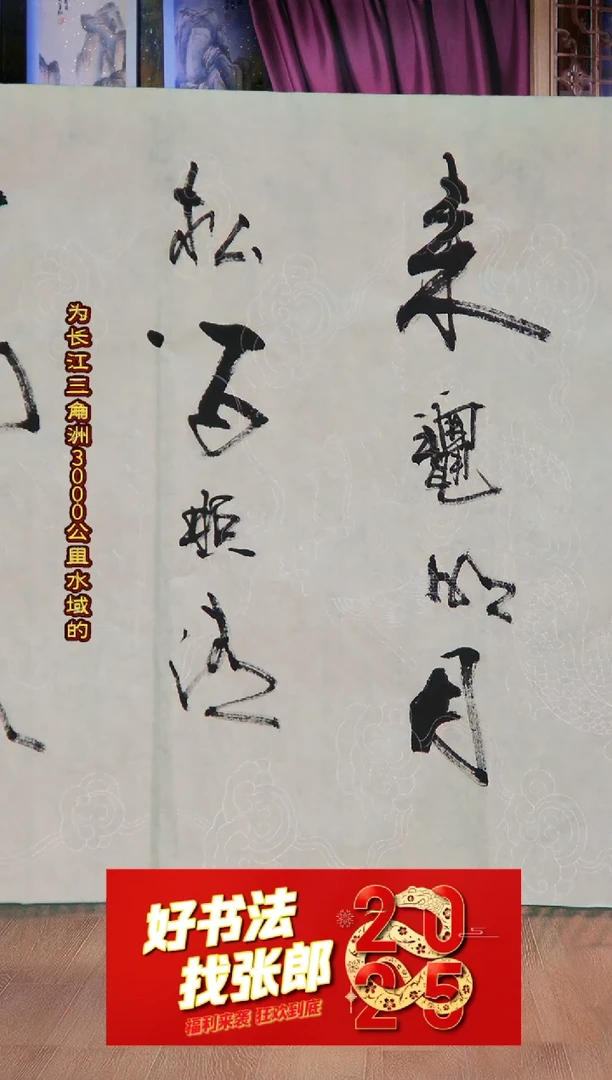 来龝明月
松间照清
为长江三角洲3000公里水域的
好书法
找张郎
福利来袭 狂欢到底
2025